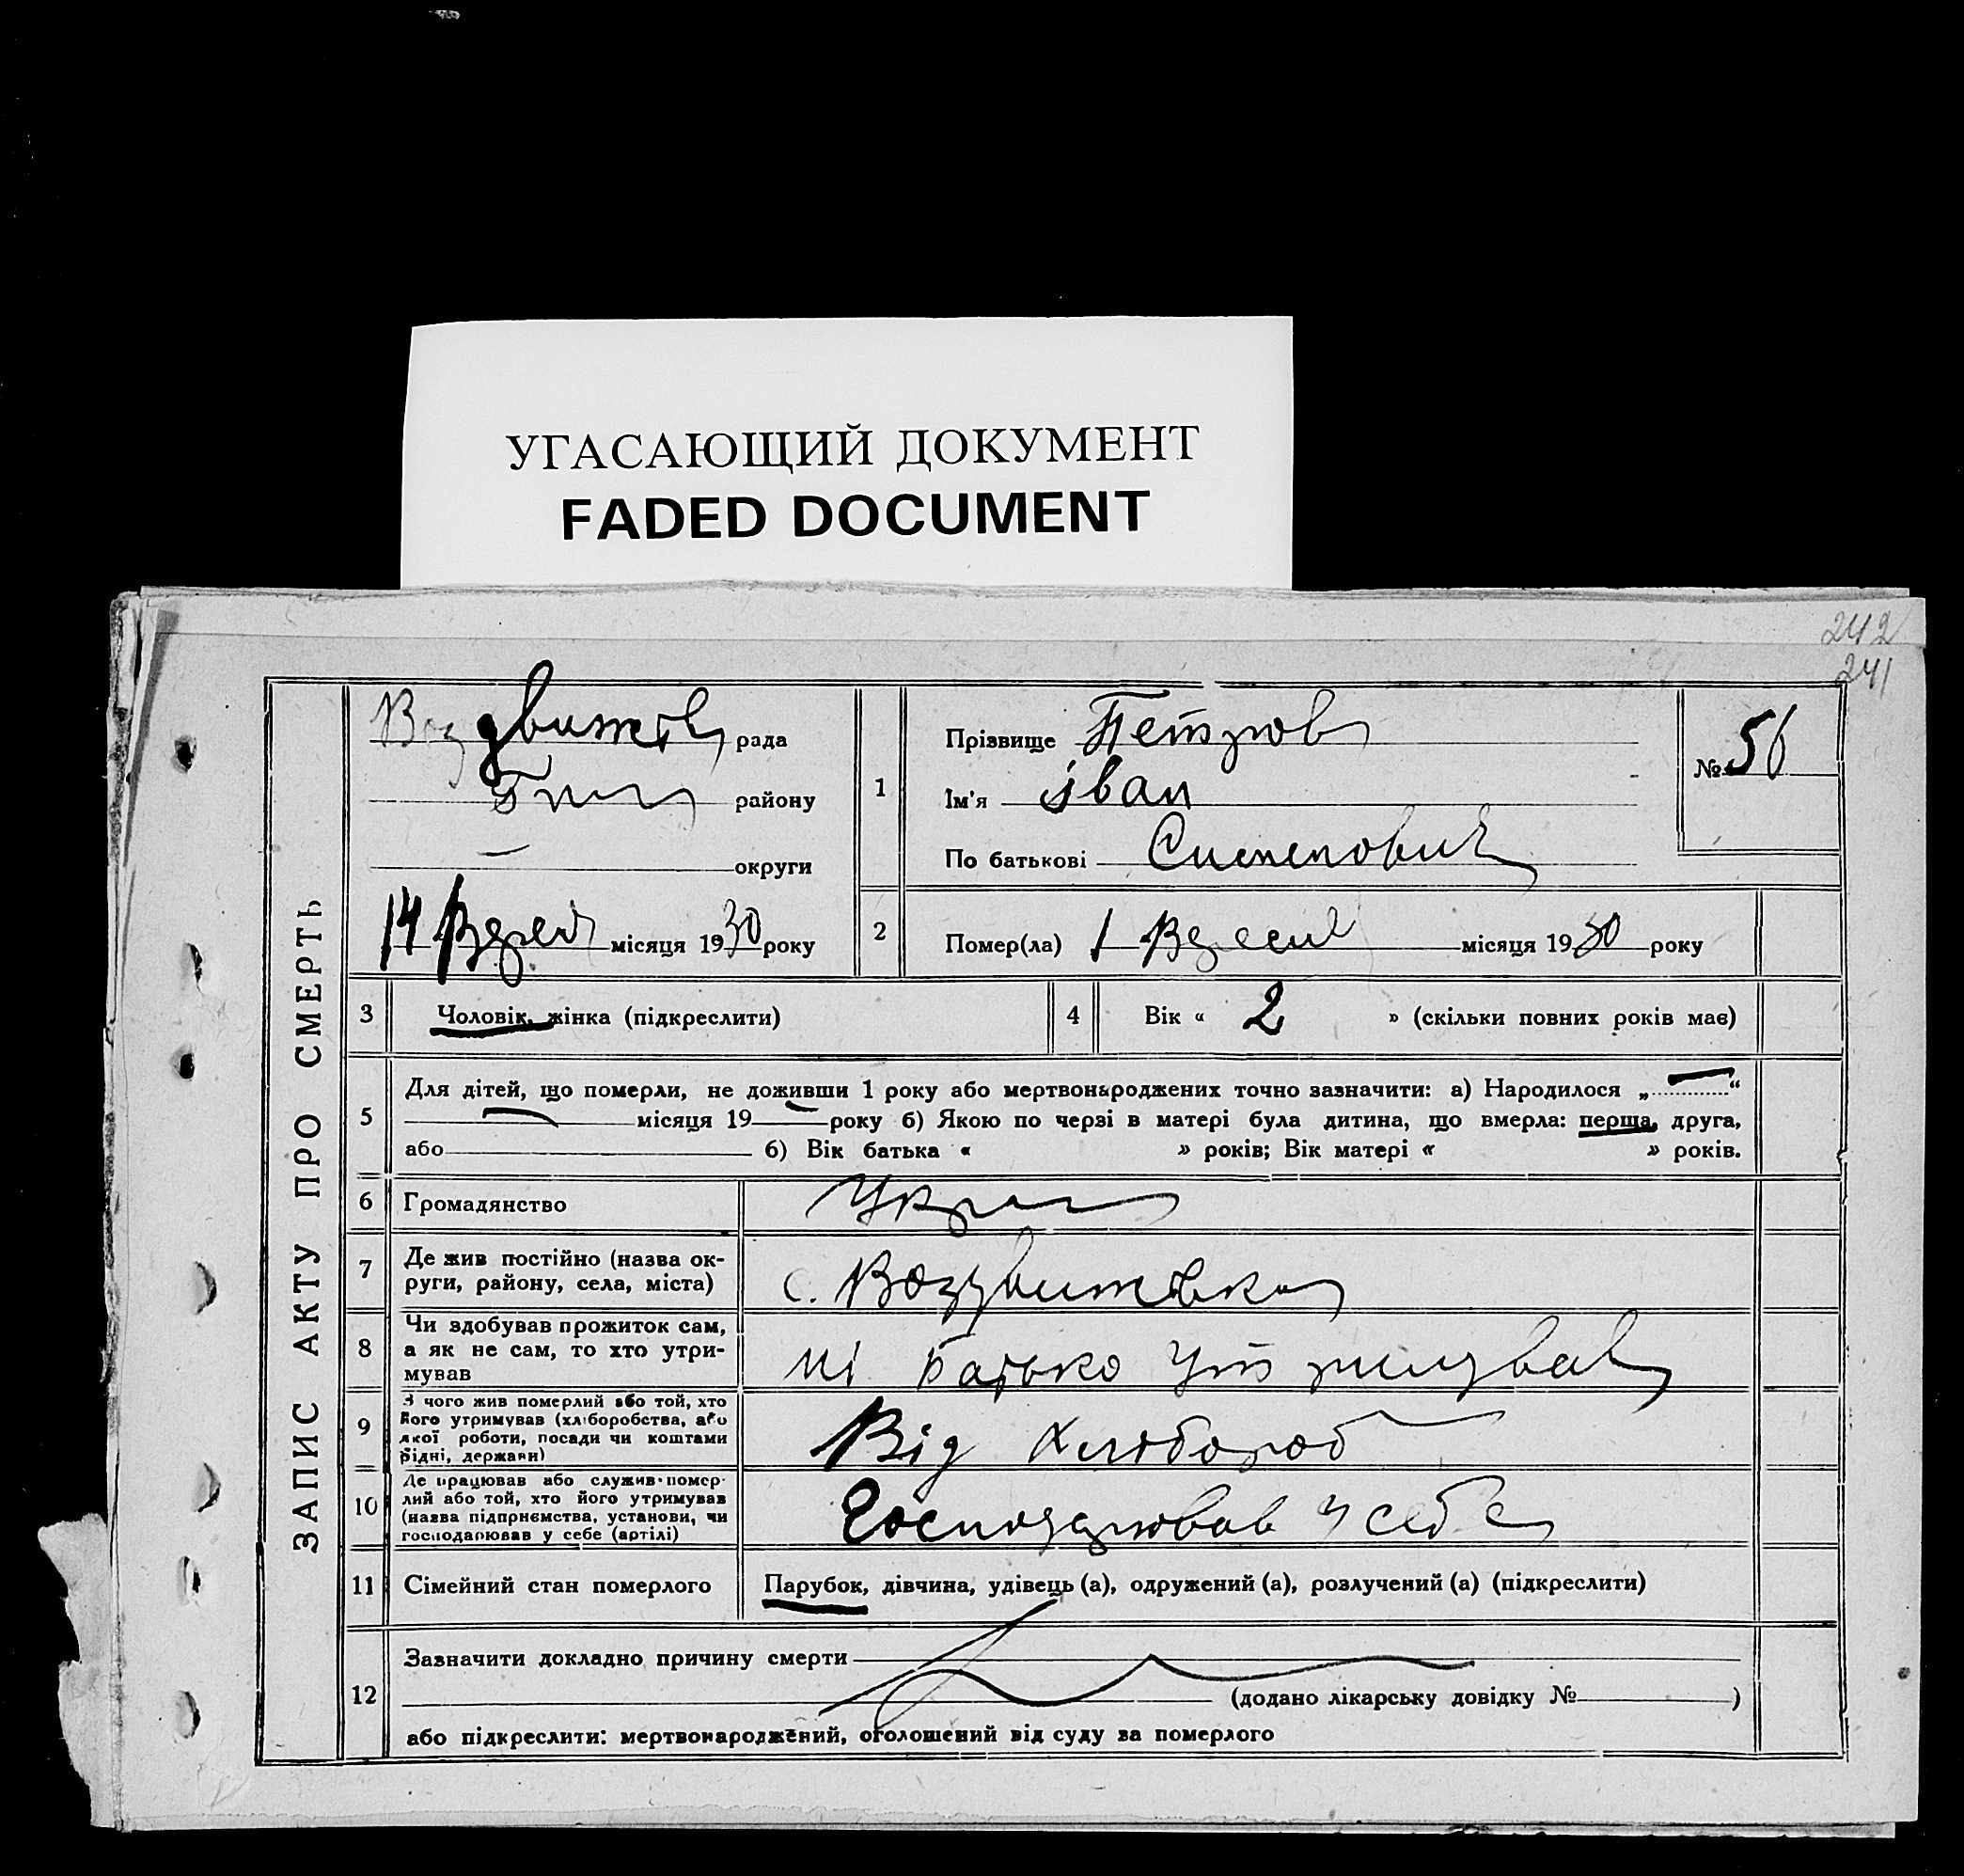 УГАСАЮЩИЙ ДОКУМЕНТ
FADED DOCUMENT
242
241
ЗАПИС АКТУ ПРО СМЕРТЬ
Воздвижів рада
району
— округи
14 Верес місяця 1930 року
1
Прізвище Петров
Ім'я іван
По батькові Сименович
№ 56
2
Помер(ла) 1 Вересня місяця 1930 року
3 Чоловік, жінка (підкреслити)
4 Вік « 2 » (скільки повних років має)
5
Для дітей, що померли, не доживши 1 року або мертвонароджених точно зазначити: а) Народилося „ — “
— місяця 19 — року б) Якою по черзі в матері була дитина, що вмерла: перша, друга,
або б) Вік батька « » років; Вік матері « » років.
6 Громадянство Укр
7 Де жив постійно (назва ок-
руги, району, села, міста)
с. Воздвижівка
8 Чи здобував прожиток сам,
а як не сам, то хто утри-
мував
ні батько утримував
9 З чого жив померлий або той, хто
його утримував (хліборобства, або
якої роботи, посади чи коштами
рідні, держави)
Від хлібороб
10 Де працював або служив помер-
лий або той, хто його утримував
(назва підприємства, установи, чи
господарював у себе (артілі)
Господарював у себе
11 Сімейний стан померлого Парубок, дівчина, удівець (а), одружений (а), розлучений (а) (підкреслити)
12
Зазначити докладно причину смерти
(додано лікарську довідку № )
або підкреслити: мертвонароджений, оголошений від суду за померлого